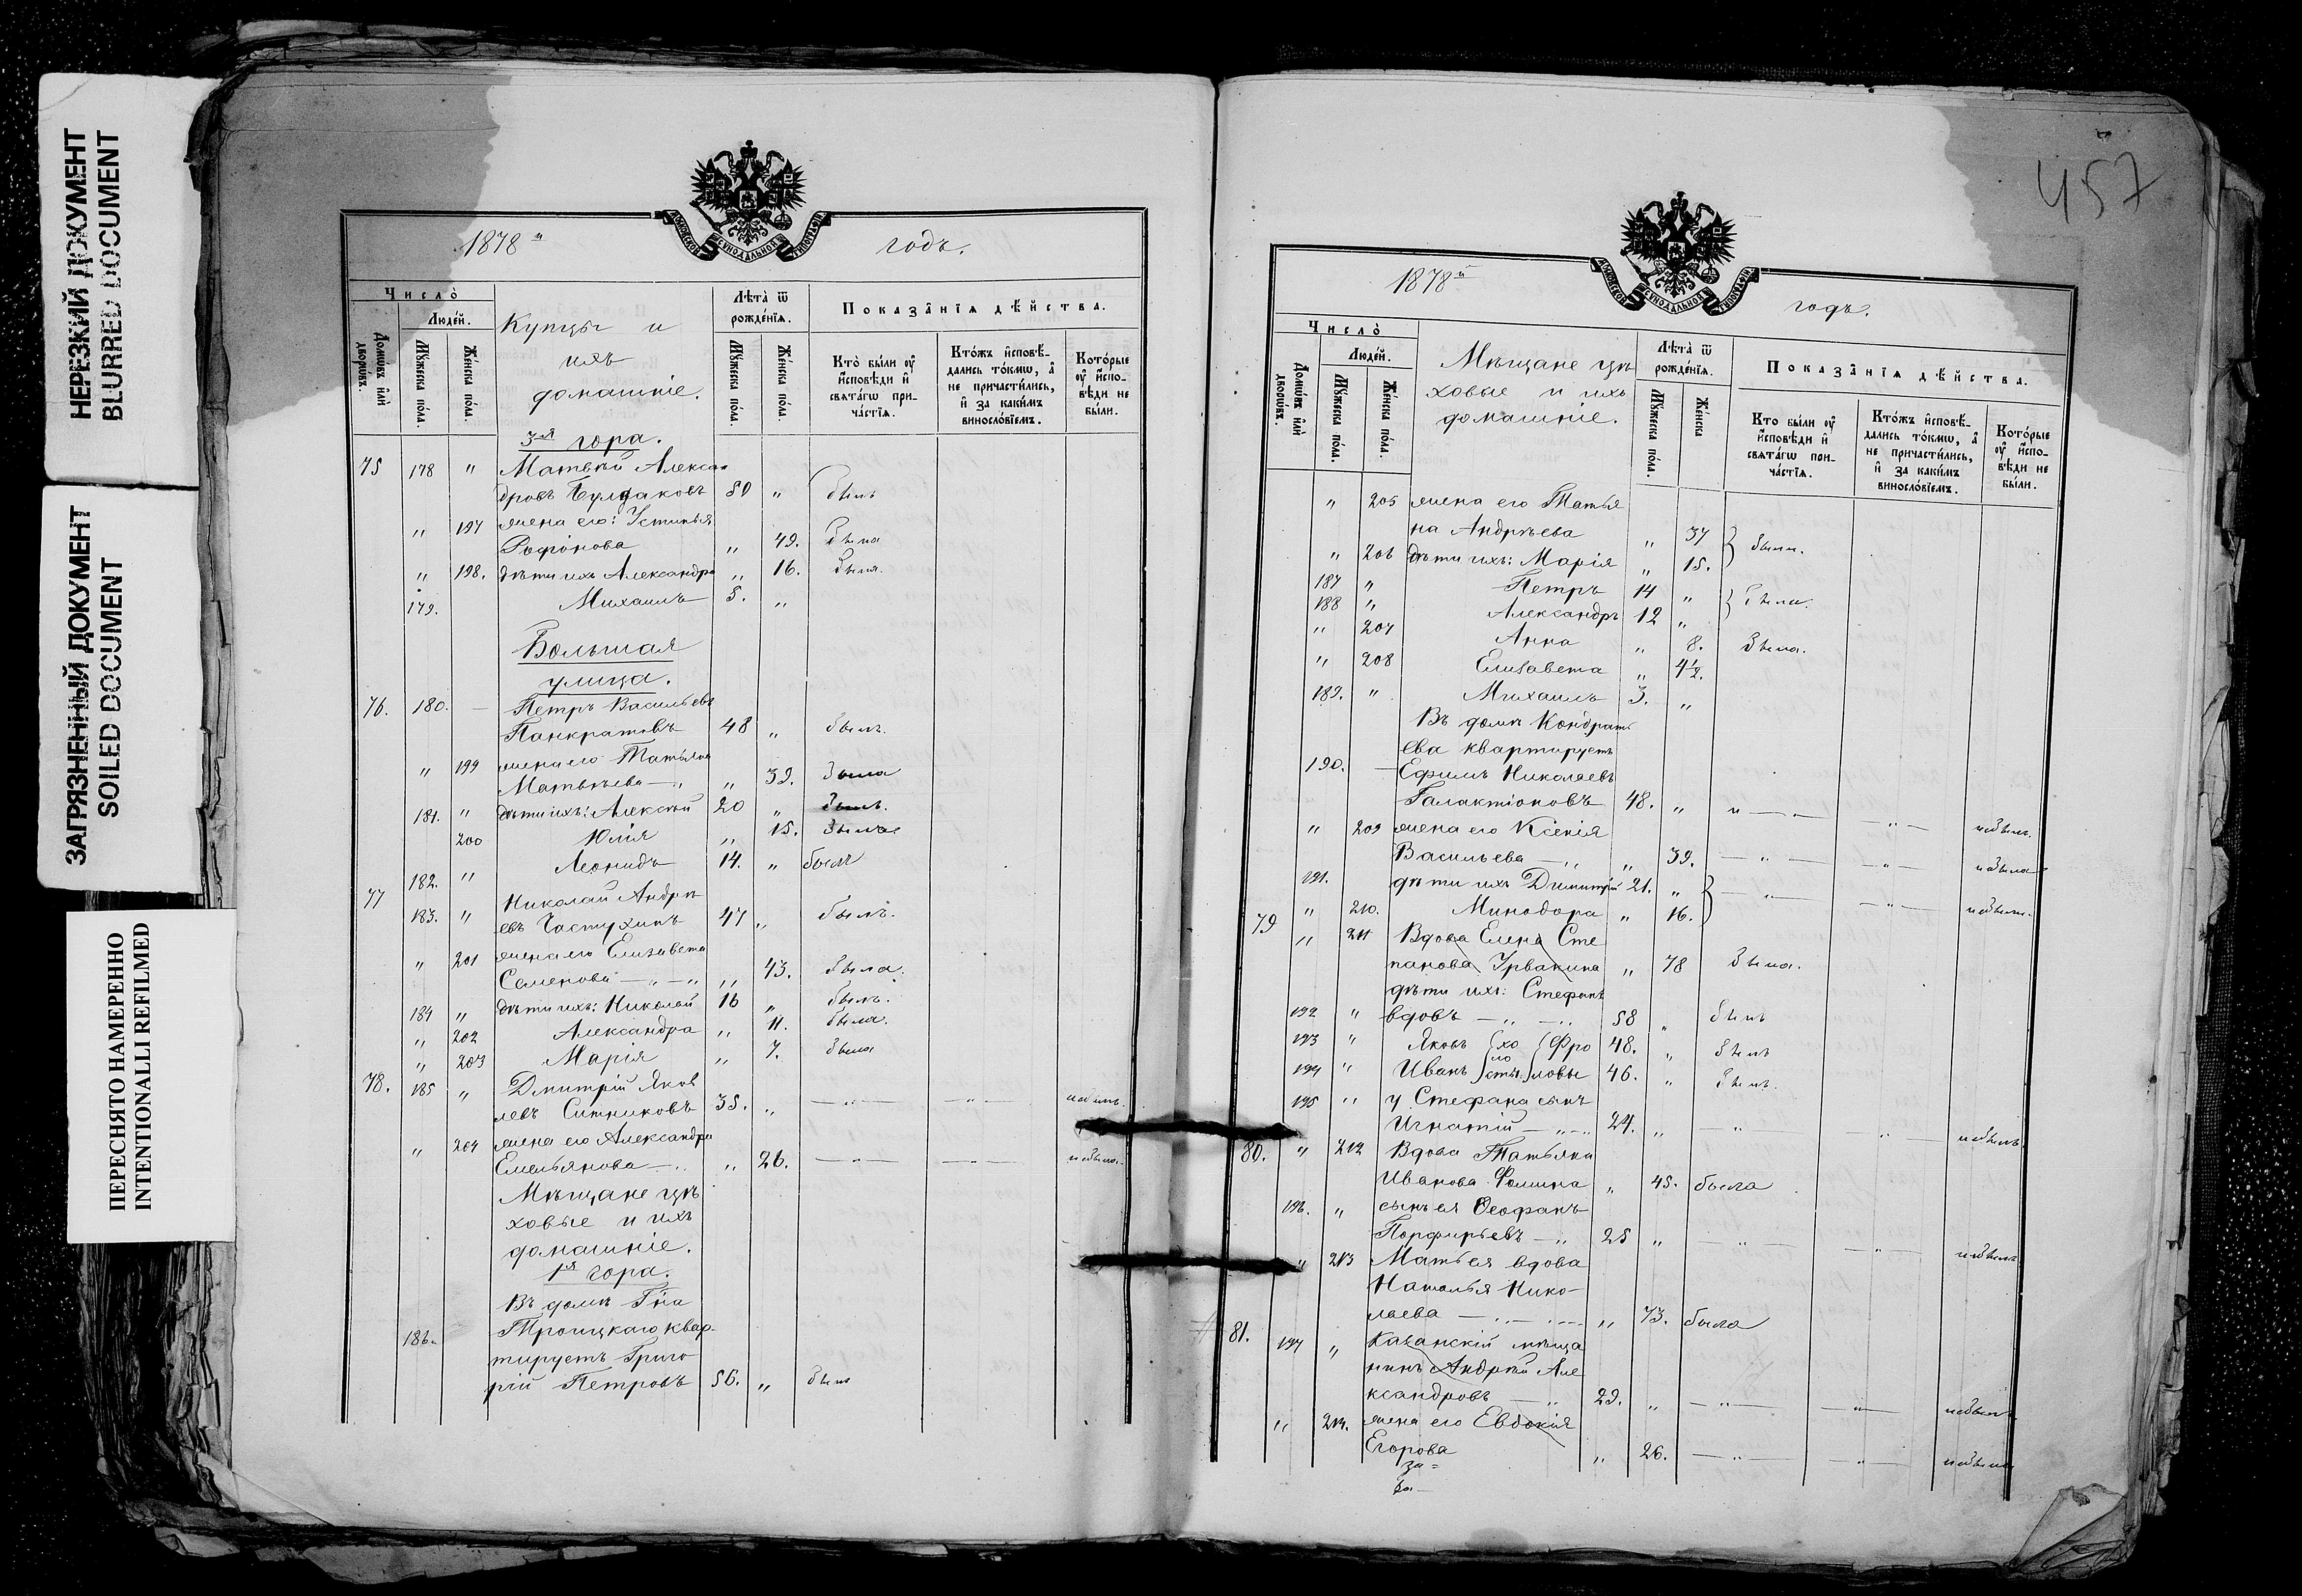 НЕРЕЗКИЙ ДОКУМЕНТ
BLURRED DOCUMENT
ЗАГРЯЗНЕННЫЙ ДОКУМЕНТ
SOILED DOCUMENT
ПЕРЕСНЯТО НАМЕРЕННО
INTENTIONALLI REFILMED
МОСКОВСКОЙ СѴНОДАЛЬНОЙ ТИПОГРАФІИ
1878й годъ.
Число̀
Люде́й.
Домѡ́въ и҆лѝ дворѡ́въ.
Мꙋ́жеска по́ла.
Же́нска по́ла.
Купцы и
ихъ
домашніе.
Лѣ́та ѿ рожде́нїѧ.
Мꙋ́жеска по́ла.
Же́нска по́ла.
Показа̑нїѧ дѣ́йства.
Кто̀ бы́ли ᲂу҆ и҆́сповѣди и҆ свѧта́гѡ прича́стїѧ.
Кто́жъ и҆сповѣ́дались то́кмѡ, а҆ не причасти́лись, и҆ за каки́мъ виносло́вїемъ.
Кото́рые ᲂу҆ и҆́сповѣди не бы́ли.
3я гора.
75 178 " Матвѣй Алексан
дровъ Булдаковъ 50 " былъ
" 197 жена его: Устинья
Рофонова " 49. была
" 198. дѣти ихъ Александра " 16. была.
179. Михаилъ 5. "
Большая
улица.
76. 180. — Петръ Васильевъ
Панкратовъ 48 " былъ.
" 199 жена его Татьяна
Матвѣева " 39. была
181. " дѣти ихъ: Алексѣй 20 " былъ.
200 Юлія " 15. была
182. " Леонидъ 14. " былъ
77 183. " Николай Андрѣ
евъ Частухинъ 47 " былъ.
" 201 жена его Елизавета
Семенова — " — " " 43. была.
184 " дѣти ихъ: Николай 16 " былъ.
" 202 Александра " 11. была.
" 203 Марія " 7. была
78. 185 " Дмитрій Яков
левъ Ситниковъ 35. " — " — — " — небылъ.
" 204 жена его Александра
Емельянова — " " 26. — " — — " — небыла.
Мѣщане цѣ
ховые и ихъ
домашніе.
1я гора.
Въ домѣ Гна
186. Троицкаго квар-
тируетъ Григо
рій Петровъ 56. " былъ
457
МОСКОВСКОЙ СѴНОДАЛЬНОЙ ТИПОГРАФІИ
1878й годъ.
Число̀
Люде́й.
Домѡ́въ и҆лѝ дворѡ́въ.
Мꙋ́жеска по́ла.
Же́нска по́ла.
Мѣщане цѣ
ховые и ихъ
домашніе.
Лѣ́та ѿ рожде́нїѧ.
Мꙋ́жеска по́ла.
Же́нска
Показа̑нїѧ дѣ́йства.
Кто̀ бы́ли ᲂу҆ и҆́сповѣди и҆ свѧта́гѡ прича́стїѧ.
Кто́жъ и҆сповѣ́дались то́кмѡ, а҆ не причасти́лись, и҆ за каки́мъ виносло́вїемъ.
Кото́рые ᲂу҆ и҆́сповѣди не бы́ли.
" 205 жена его Татья
на Андрѣева " 37 были.
" 206 дѣти ихъ: Марія " 15.
187 " Петръ 14 "
188 " Александръ 12 "
" 207 Анна " 8. была.
" 208 Елизавета " 4½.
189. " Михаилъ 3. "
Въ домѣ Кондрать
ева квартируетъ
190. — Ефимъ Николаевъ
Галактіоновъ 48. " " — " — " — небылъ.
" 209 жена его Ксенія
Васильева — " " 39. — " — — " — небыла
191. дѣти ихъ Димитрій 21. " — " — — " — небыли.
" 210. Минодора " 16.
79 " 211 Вдова Елена Сте
панова Урванина " 78 была.
дѣти ихъ: Стефанъ
192 " вдовъ — " — " 58 " былъ
193 " Яковъ хо Фро 48. " былъ
194 " Иванъ лостъ ловы 46. " былъ.
195 " у Стефана сынъ
Игнатій — " — " 24. " — " — " — небылъ
80. " 212 Вдова Татьяна
Иванова Фомина " 45. была
196. " сынъ ея Ѳеофанъ
Порфирьевъ — " 25 " — " — — " — небылъ
" 213 Мать ея вдова
Наталья Нико-
лаева " 73. была
81. 197 " Казанскій мѣща
нинъ Андрей Але
ксандровъ — " 29. " — " — — " — небылъ
" 214. жена его Евдокія
Егорова " 26. — " — " — небыла